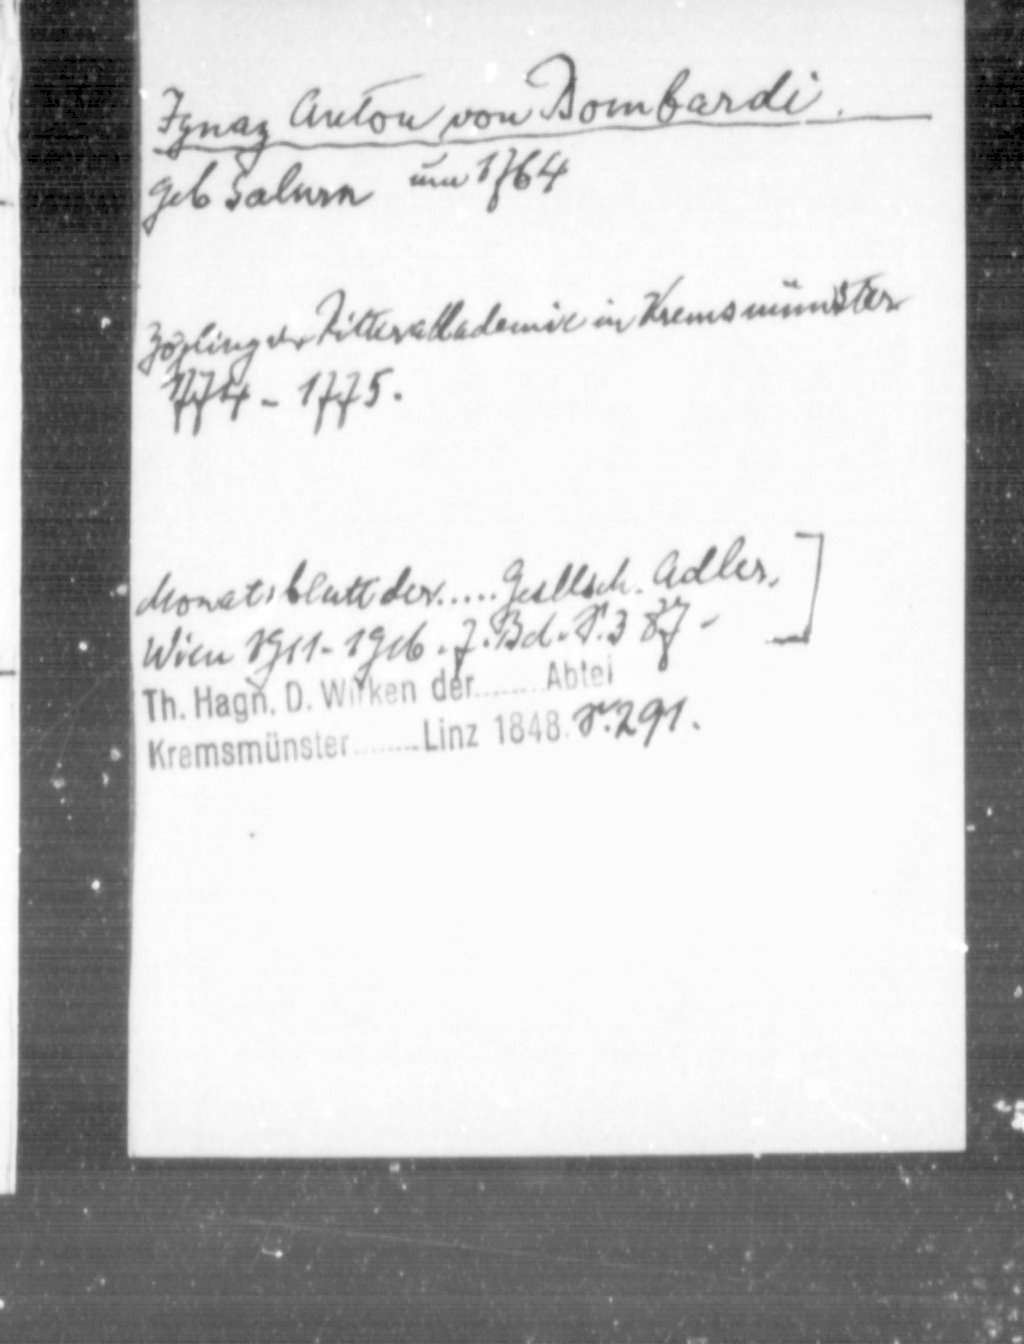 Ignaz Anton von Bombardi.
geb Salurn um 1764
Zögling der Ritterakademie in Kremsmünster
1774 - 1775.
Monatsblatt der..... Gesellsch. Adler,
Wien 1911-1916. 7. Bd. S. 387 -
Th. Hagn. D. Wirken der........Abtei
Kremsmünster........Linz 1848. S. 291.